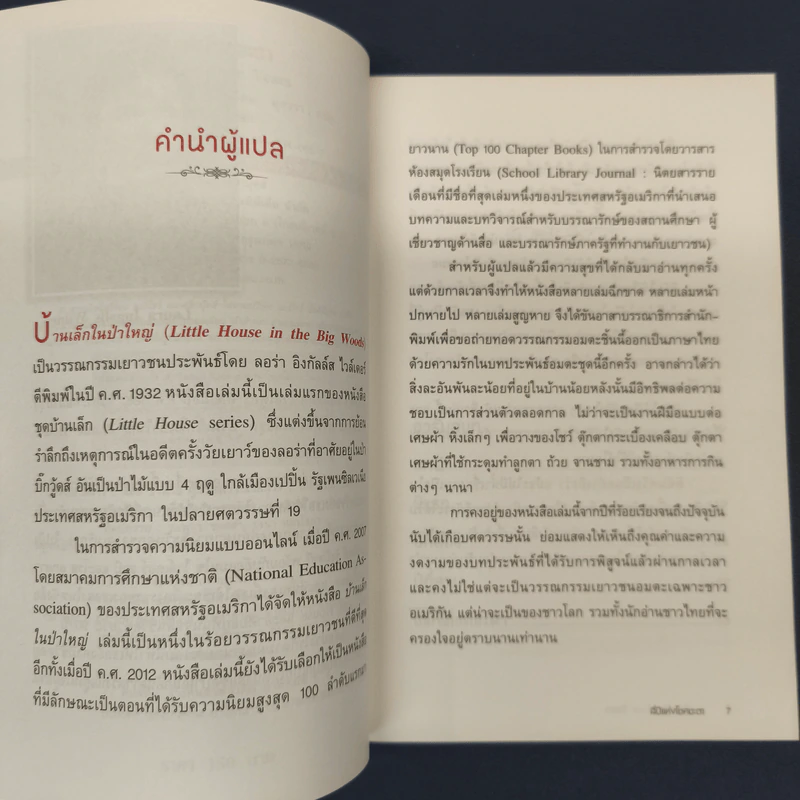 คำนำผู้แปล
บ้านเล็กในป่าใหญ่ (Little House in the Big Woods)
เป็นวรรณกรรมเยาวชนประพันธ์โดย ลอร่า อิงกัลล์ส ไวล์เดอร์
ตีพิมพ์ในปี ค.ศ. 1932 หนังสือเล่มนี้เป็นเล่มแรกของหนังสือ
ชุดบ้านเล็ก (Little House series) ซึ่งแต่งขึ้นจากการย้อน
รำลึกถึงเหตุการณ์ในอดีตครั้งวัยเยาว์ของลอร่าที่อาศัยอยู่ในป่า
บิ๊กวู้ดส์ อันเป็นป่าไม้แบบ 4 ฤดู ใกล้เมืองเปปิ้น รัฐเพนซิลเวเนีย
ประเทศสหรัฐอเมริกา ในปลายศตวรรษที่ 19
ในการสำรวจความนิยมแบบออนไลน์ เมื่อปี ค.ศ. 2007
โดยสมาคมการศึกษาแห่งชาติ (National Education As-
sociation) ของประเทศสหรัฐอเมริกาได้จัดให้หนังสือ บ้านเล็ก
ในป่าใหญ่ เล่มนี้เป็นหนึ่งในร้อยวรรณกรรมเยาวชนที่ดีที่สุด
อีกทั้งเมื่อปี ค.ศ. 2012 หนังสือเล่มนี้ยังได้รับเลือกให้เป็นหนังสือ
ที่มีลักษณะเป็นตอนที่ได้รับความนิยมสูงสุด 100 ลำดับแรกมา
ยาวนาน (Top 100 Chapter Books) ในการสำรวจโดยวารสาร
ห้องสมุดโรงเรียน (School Library Journal : นิตยสารราย
เดือนที่มีชื่อที่สุดเล่มหนึ่งของประเทศสหรัฐอเมริกาที่นำเสนอ
บทความและบทวิจารณ์สำหรับบรรณารักษ์ของสถานศึกษา ผู้
เชี่ยวชาญด้านสื่อ และบรรณารักษ์ภาครัฐที่ทำงานกับเยาวชน)
สำหรับผู้แปลแล้วมีความสุขที่ได้กลับมาอ่านทุกครั้ง
แต่ด้วยกาลเวลาจึงทำให้หนังสือหลายเล่มฉีกขาด หลายเล่มหน้า
ปกหายไป หลายเล่มสูญหาย จึงได้ขันอาสาบรรณาธิการสำนัก-
พิมพ์เพื่อขอถ่ายทอดวรรณกรรมอมตะชิ้นนี้ออกเป็นภาษาไทย
ด้วยความรักในบทประพันธ์อมตะชุดนี้อีกครั้ง อาจกล่าวได้ว่า
สิ่งละอันพันละน้อยที่อยู่ในบ้านน้อยหลังนั้นมีอิทธิพลต่อความ
ชอบเป็นการส่วนตัวตลอดกาล ไม่ว่าจะเป็นงานฝีมือแบบต่อ
เศษผ้า หิ้งเล็กๆ เพื่อวางของโชว์ ตุ๊กตากระเบื้องเคลือบ ตุ๊กตา
เศษผ้าที่ใช้กระดุมทำลูกตา ถ้วย จานชาม รวมทั้งอาหารการกิน
ต่างๆ นานา
การคงอยู่ของหนังสือเล่มนี้จากปีที่ร้อยเรียงจนถึงปัจจุบัน
นับได้เกือบศตวรรษนั้น ย่อมแสดงให้เห็นถึงคุณค่าและความ
งดงามของบทประพันธ์ที่ได้รับการพิสูจน์แล้วผ่านกาลเวลา
และคงไม่ใช่แต่จะเป็นวรรณกรรมเยาวชนอมตะเฉพาะชาว
อเมริกัน แต่น่าจะเป็นของชาวโลก รวมทั้งนักอ่านชาวไทยที่จะ
ครองใจอยู่ตราบนานเท่านาน
7